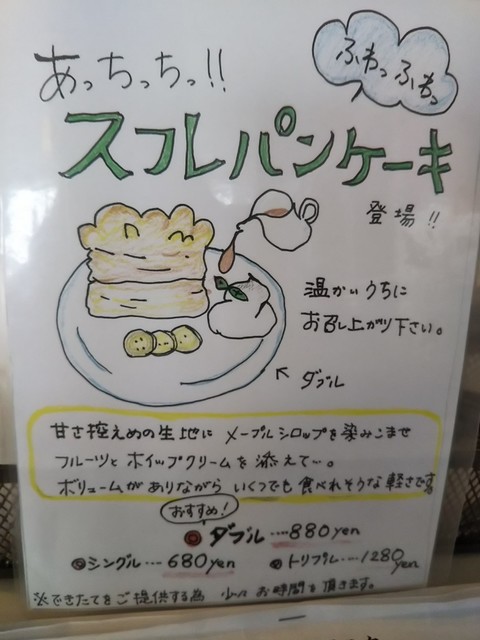 あっちっちっ!!
ふわっふわっ
スフレパンケーキ
登場!!
温かいうちに
お召し上がり下さい。
ダブル
甘さ控えめの生地に メープルシロップを染みこませ
フルーツと ホイップクリームを 添えて…。
ボリュームがありながら いくつでも 食べれそうな軽さです
おすすめ!
◎ダブル….880yen
◎シングル…680yen ◎トリプル….1280yen
※できたてをご提供する為 少々 お時間を頂きます。